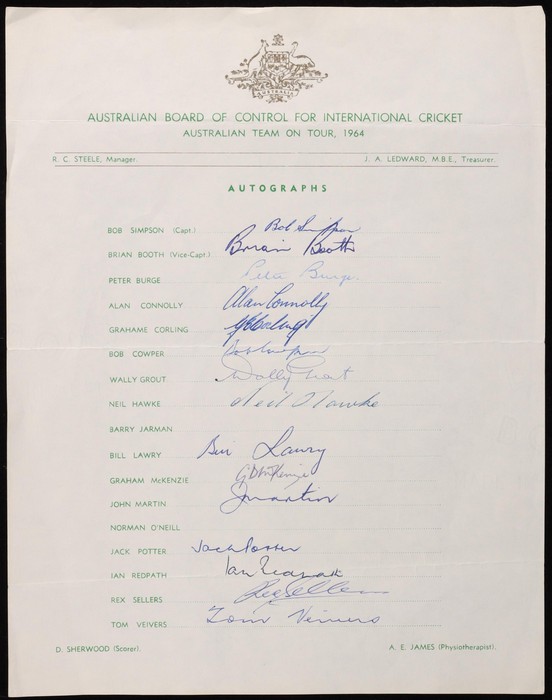 AUSTRALIAN BOARD OF CONTROL FOR INTERNATIONAL CRICKET
AUSTRALIAN TEAM ON TOUR, 1964
R. C. STEELE, Manager. J. A. LEDWARD, M.B.E., Treasurer.
AUTOGRAPHS
BOB SIMPSON (Capt.) Bob Simpson
BRIAN BOOTH (Vice-Capt.) Brian Booth
PETER BURGE Peter Burge
ALAN CONNOLLY Alan Connolly
GRAHAME CORLING G Corling
BOB COWPER Bob Cowper
WALLY GROUT Wally Grout
NEIL HAWKE Neil Hawke
BARRY JARMAN
BILL LAWRY Bill Lawry
GRAHAM McKENZIE G D McKenzie
JOHN MARTIN J Martin
NORMAN O'NEILL
JACK POTTER Jack Potter
IAN REDPATH Ian Redpath
REX SELLERS Rex Sellers
TOM VEIVERS Tom Veivers
D. SHERWOOD (Scorer). A. E. JAMES (Physiotherapist).